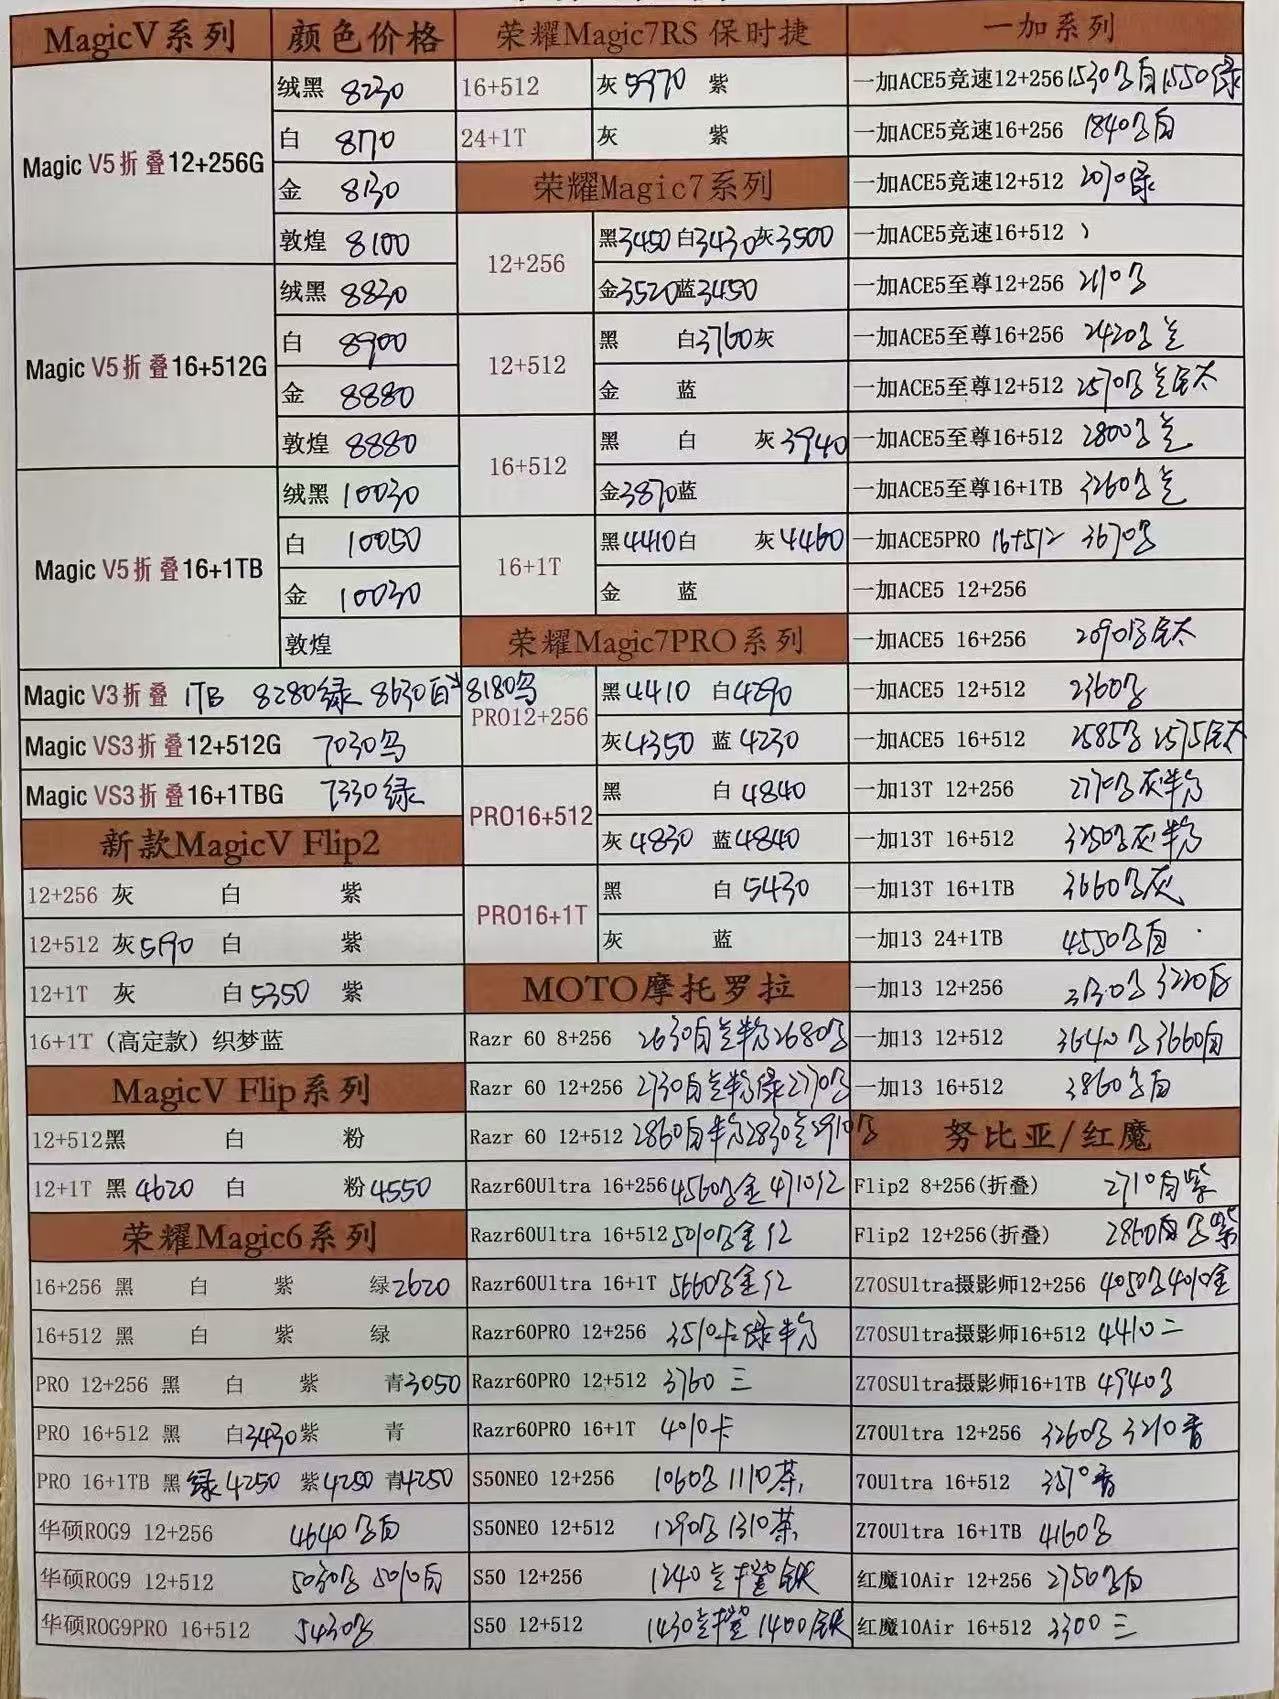 MagicV系列 颜色价格
Magic V5折叠12+256G
绒黑 8230
白 8170
金 8130
敦煌 8100
Magic V5折叠16+512G
绒黑 8830
白 8900
金 8880
敦煌 8880
Magic V5折叠16+1TB
绒黑 10030
白 10050
金 10030
敦煌
Magic V3折叠 1TB 8280绿 8630白 8180
Magic VS3折叠12+512G 7030
Magic VS3折叠16+1TBG 7330绿
新款MagicV Flip2
12+256 灰 白 紫
12+512 灰5190 白 紫
12+1T 灰 白5350 紫
16+1T (高定款) 织梦蓝
MagicV Flip系列
12+512黑 白 粉
12+1T 黑4620 白 粉4550
荣耀Magic6系列
16+256 黑 白 紫 绿2620
16+512 黑 白 紫 绿
PRO 12+256 黑 白 紫 青3050
PRO 16+512 黑 白3430紫 青
PRO 16+1TB 黑 绿4250 紫4250 青4250
华硕ROG9 12+256 4640 白
华硕ROG9 12+512 5030 5010白
华硕ROG9PRO 16+512 5430
荣耀Magic7RS 保时捷
16+512 灰5970 紫
24+1T 灰 紫
荣耀Magic7系列
12+256
黑3450白3430灰3500
金3520蓝3450
12+512
黑 白3760灰
金 蓝
16+512
黑 白 灰3940
金3870蓝
16+1T
黑4410白 灰4460
金 蓝
荣耀Magic7PRO系列
PRO12+256
黑4410 白4290
灰4350 蓝4230
PRO16+512
黑 白4840
灰4830 蓝4840
PRO16+1T
黑 白5430
灰 蓝
MOTO摩托罗拉
Razr 60 8+256 2630白 粉2680
Razr 60 12+256 2730白 粉绿2770
Razr 60 12+512 2860白粉2830 2910
Razr60Ultra 16+256 4560 金 4710红
Razr60Ultra 16+512 5010 金红
Razr60Ultra 16+1T 5660 金红
Razr60PRO 12+256 3510卡绿粉
Razr60PRO 12+512 3760三
Razr60PRO 16+1T 4010卡
S50NEO 12+256 1060 1110茶
S50NEO 12+512 1290 1310茶
S50 12+256 1240
S50 12+512 1430 1400
一加系列
一加ACE5竞速12+256 1530 白1550绿
一加ACE5竞速16+256 1840 白
一加ACE5竞速12+512 2070绿
一加ACE5竞速16+512
一加ACE5至尊12+256
一加ACE5至尊16+256 2420
一加ACE5至尊12+512 2570 钛
一加ACE5至尊16+512 2800
一加ACE5至尊16+1TB 3260
一加ACE5PRO 16+512 3670
一加ACE5 12+256
一加ACE5 16+256 2090 钛
一加ACE5 12+512 2360
一加ACE5 16+512 2585 2575钛
一加13T 12+256 灰粉
一加13T 16+512 灰粉
一加13T 16+1TB 3660 灰
一加13 24+1TB 4550 白
一加13 12+256 3220白
一加13 12+512 3640 3660白
一加13 16+512 3860 白
努比亚/红魔
Flip2 8+256(折叠) 2710白紫
Flip2 12+256(折叠) 2860白 紫
Z70SUltra摄影师12+256 4050 4010金
Z70SUltra摄影师16+512 4410二
Z70SUltra摄影师16+1TB 4940
Z70Ultra 12+256 3260 3210
70Ultra 16+512 3570
Z70Ultra 16+1TB 4160
红魔10Air 12+256 2750 白
红魔10Air 16+512 3300三